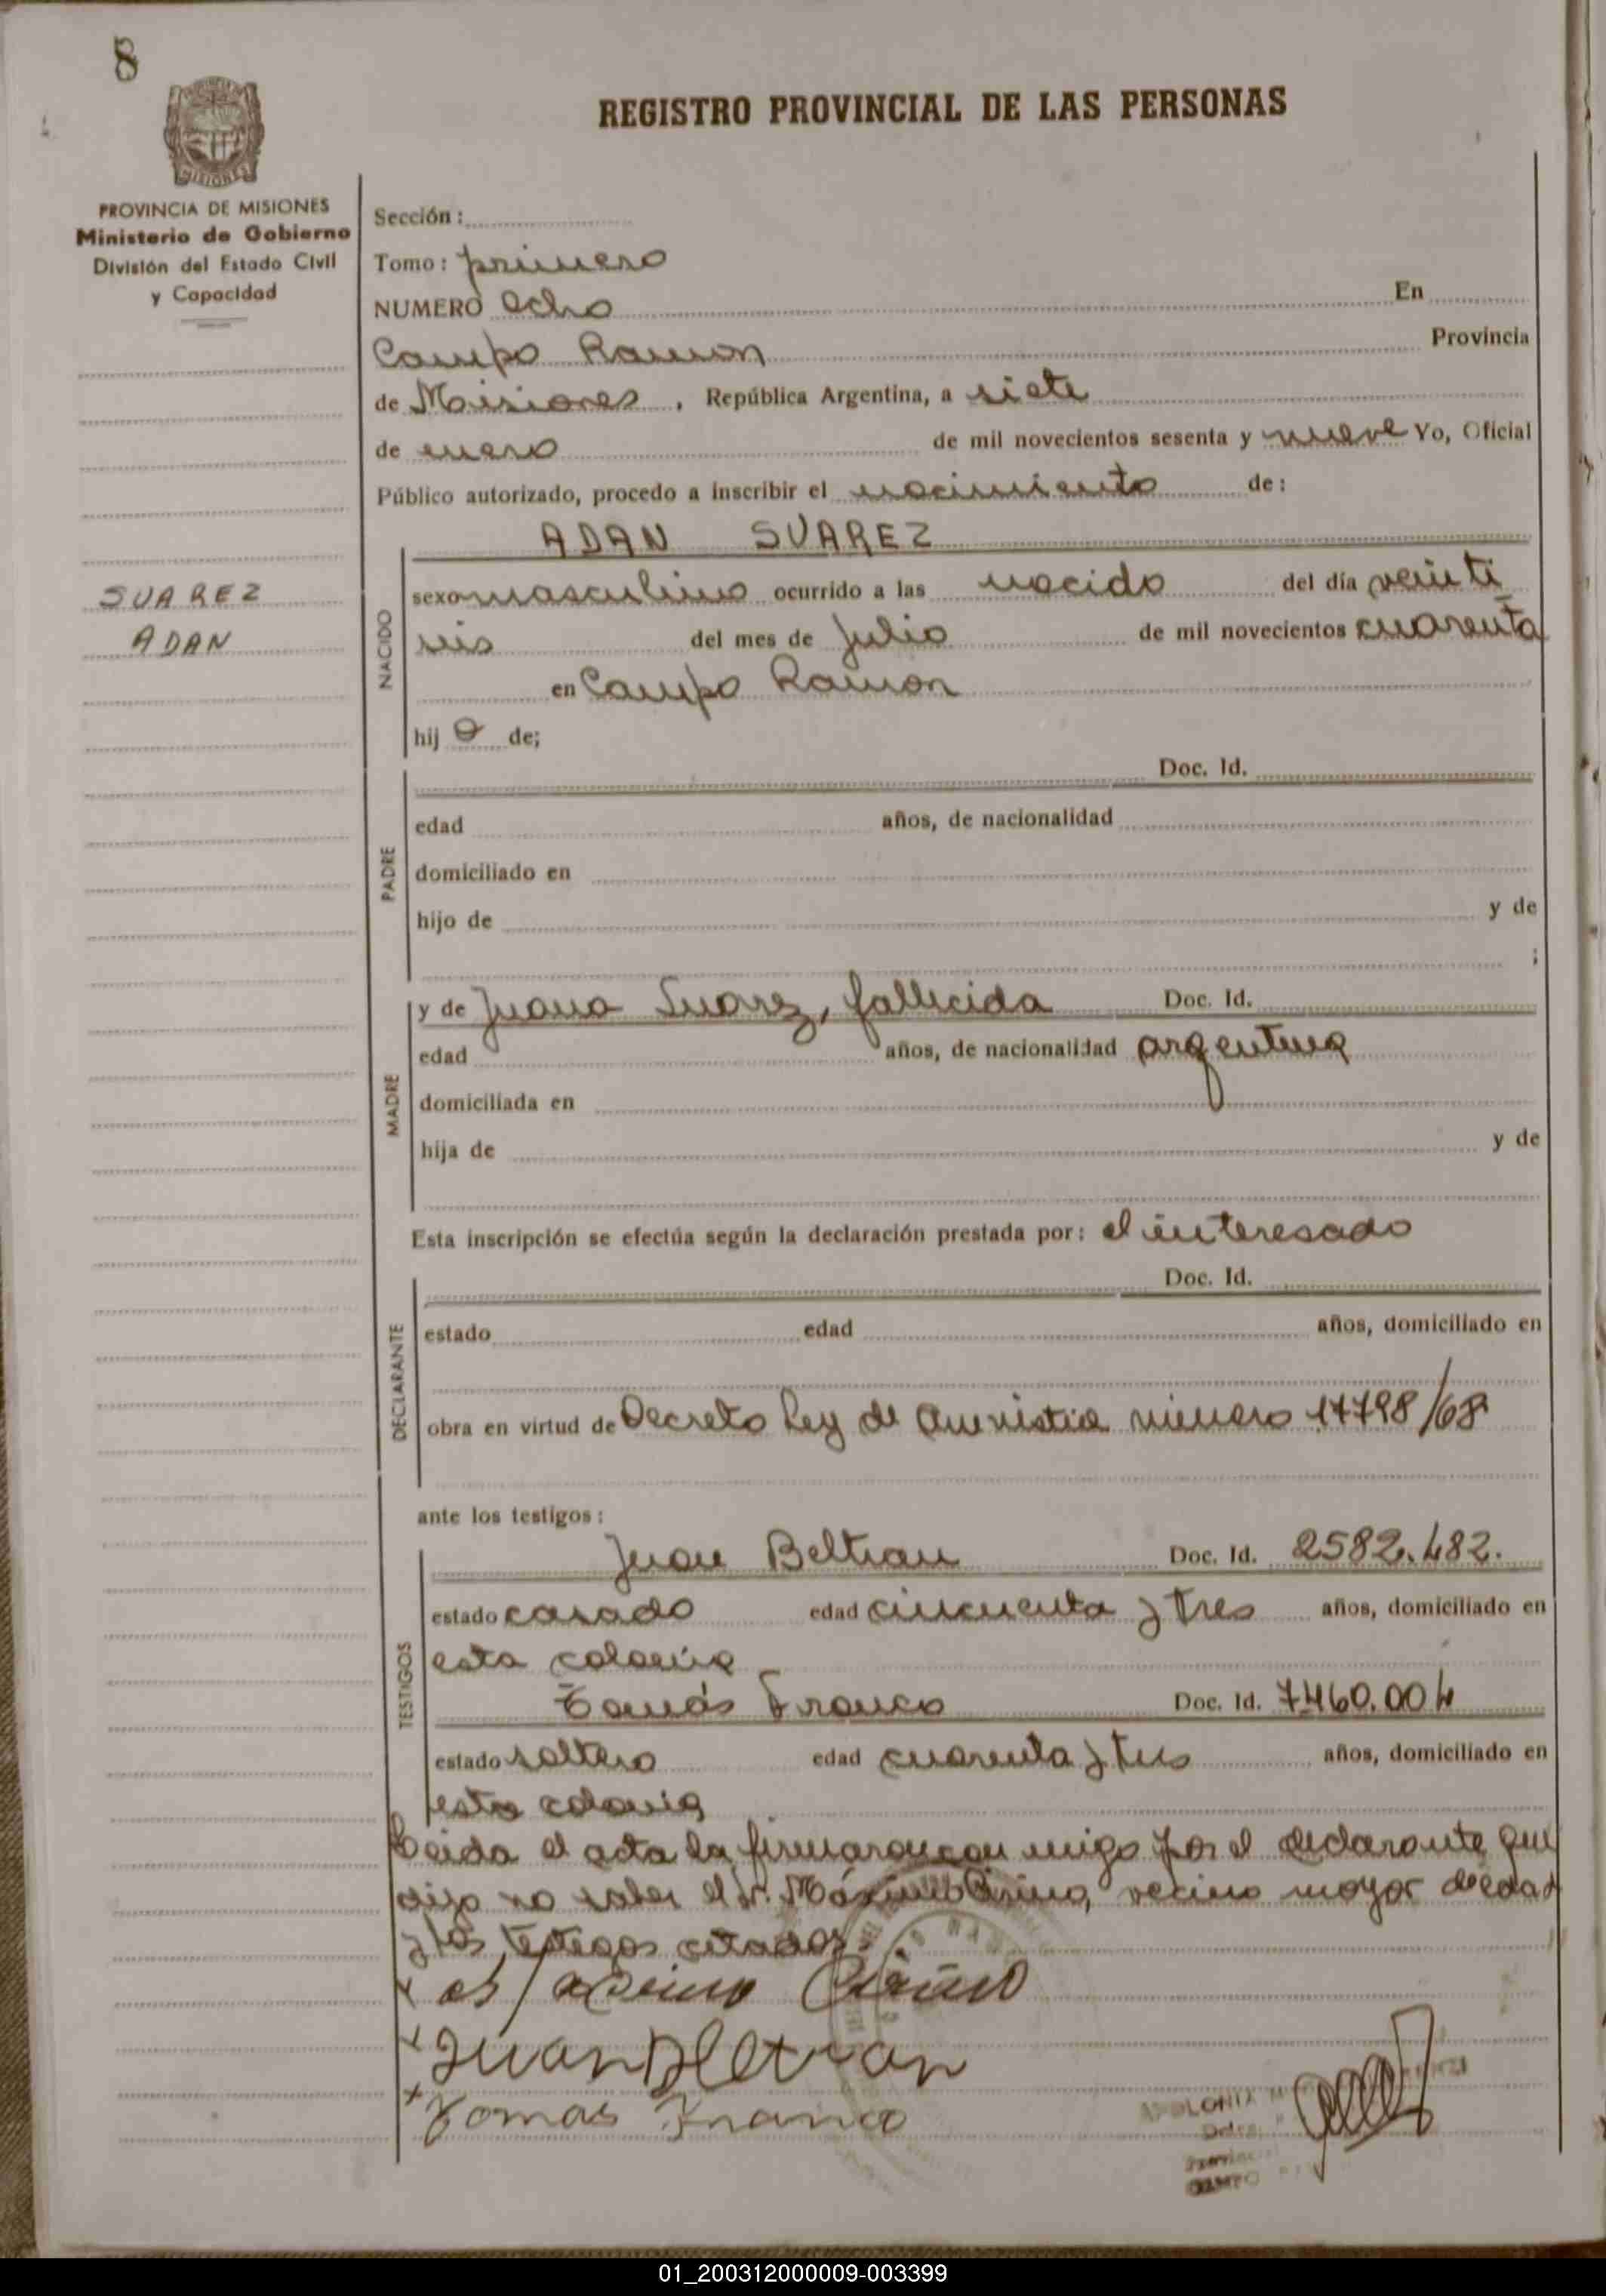 8
REGISTRO PROVINCIAL DE LAS PERSONAS
MISIONES
PROVINCIA DE MISIONES
Ministerio de Gobierno
División del Estado Civil
y Capacidad
Sección:
Tomo: primero
NUMERO ocho En
Campo Ramon Provincia
de Misiones, República Argentina, a siete
de enero de mil novecientos sesenta y nueve Yo, Oficial
Público autorizado, procedo a inscribir el nacimiento de:
ADAN SUAREZ
SUAREZ
ADAN
NACIDO
sexo masculino ocurrido a las nacido del día veinti
seis del mes de Julio de mil novecientos cuarenta
en Campo Ramon
hij o de;
PADRE
Doc. Id.
edad años, de nacionalidad
domiciliado en
hijo de y de
;
MADRE
y de Juana Suarez, fallecida Doc. Id.
edad años, de nacionalidad argentina
domiciliada en
hija de y de
Esta inscripción se efectúa según la declaración prestada por: el interesado
DECLARANTE
Doc. Id.
estado edad años, domiciliado en
obra en virtud de Decreto Ley de Amnistia número 17798/68
ante los testigos:
TESTIGOS
Juan Beltran Doc. Id. 2582.482.
estado casado edad cincuenta y tres años, domiciliado en
esta colonia
Tomás Franco Doc. Id. 7460.004
estado soltero edad cuarenta y tres años, domiciliado en
esta colonia
Leida el acta la firmaron conmigo por el declarante que
dijo no saber el Sr. Máximo vecino mayor de edad
y los testigos citados.
Juan Beltran
Tomas Franco
01_200312000009-003399